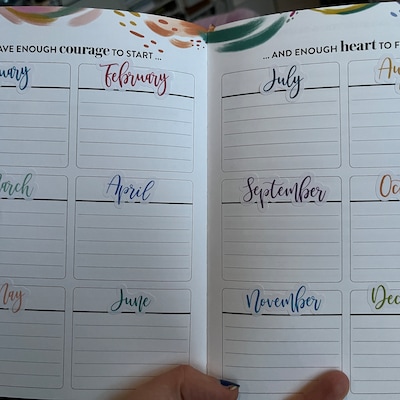 AVE ENOUGH courage TO START ...
uary
February
arch
April
May
June
... AND ENOUGH heart TO F
July
Au
September
Oc
November
Dec